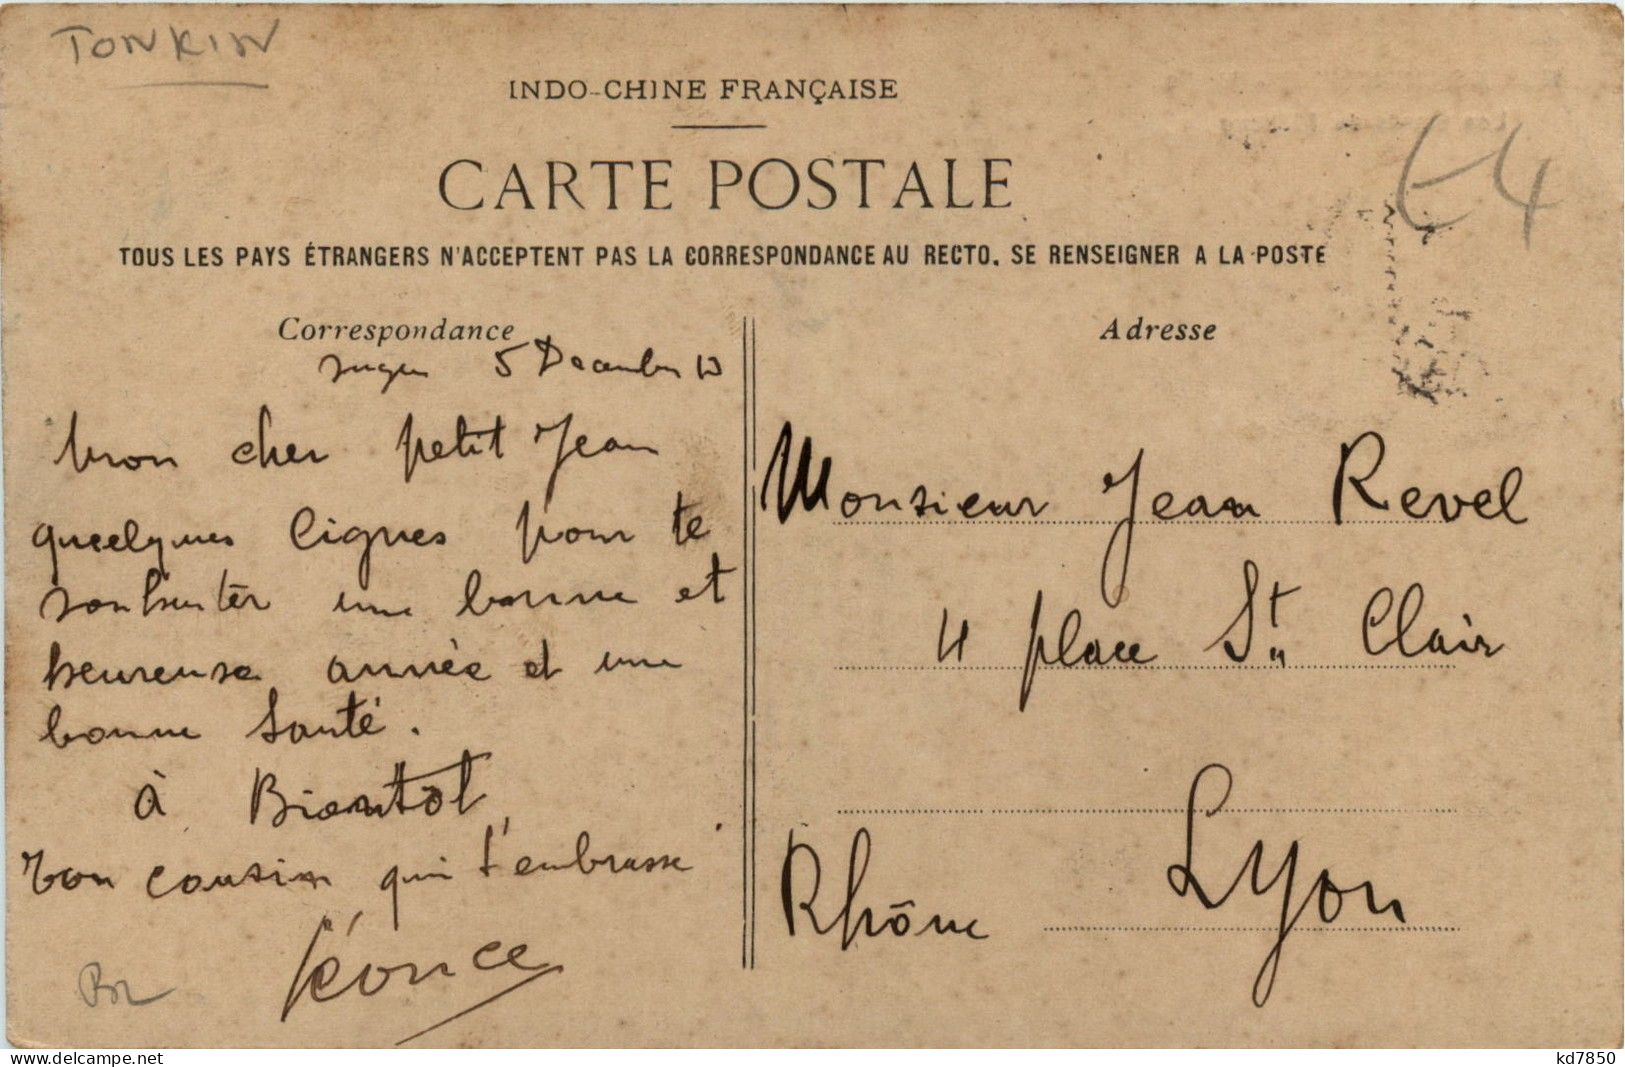 TONKIN
INDO-CHINE FRANÇAISE
CARTE POSTALE
TOUS LES PAYS ÉTRANGERS N'ACCEPTENT PAS LA CORRESPONDANCE AU RECTO. SE RENSEIGNER A LA POSTE
Correspondance
5 Decembre 13
Mon cher petit Jean
quelques lignes pour te
souhaiter une bonne et
heureuse année et une
bonne santé.
à Bientôt
ton cousin qui t'embrasse
Léonce
Adresse
Monsieur Jean Revel
4 place St Clair
Lyon
Rhône
kd7850
www.delcampe.net